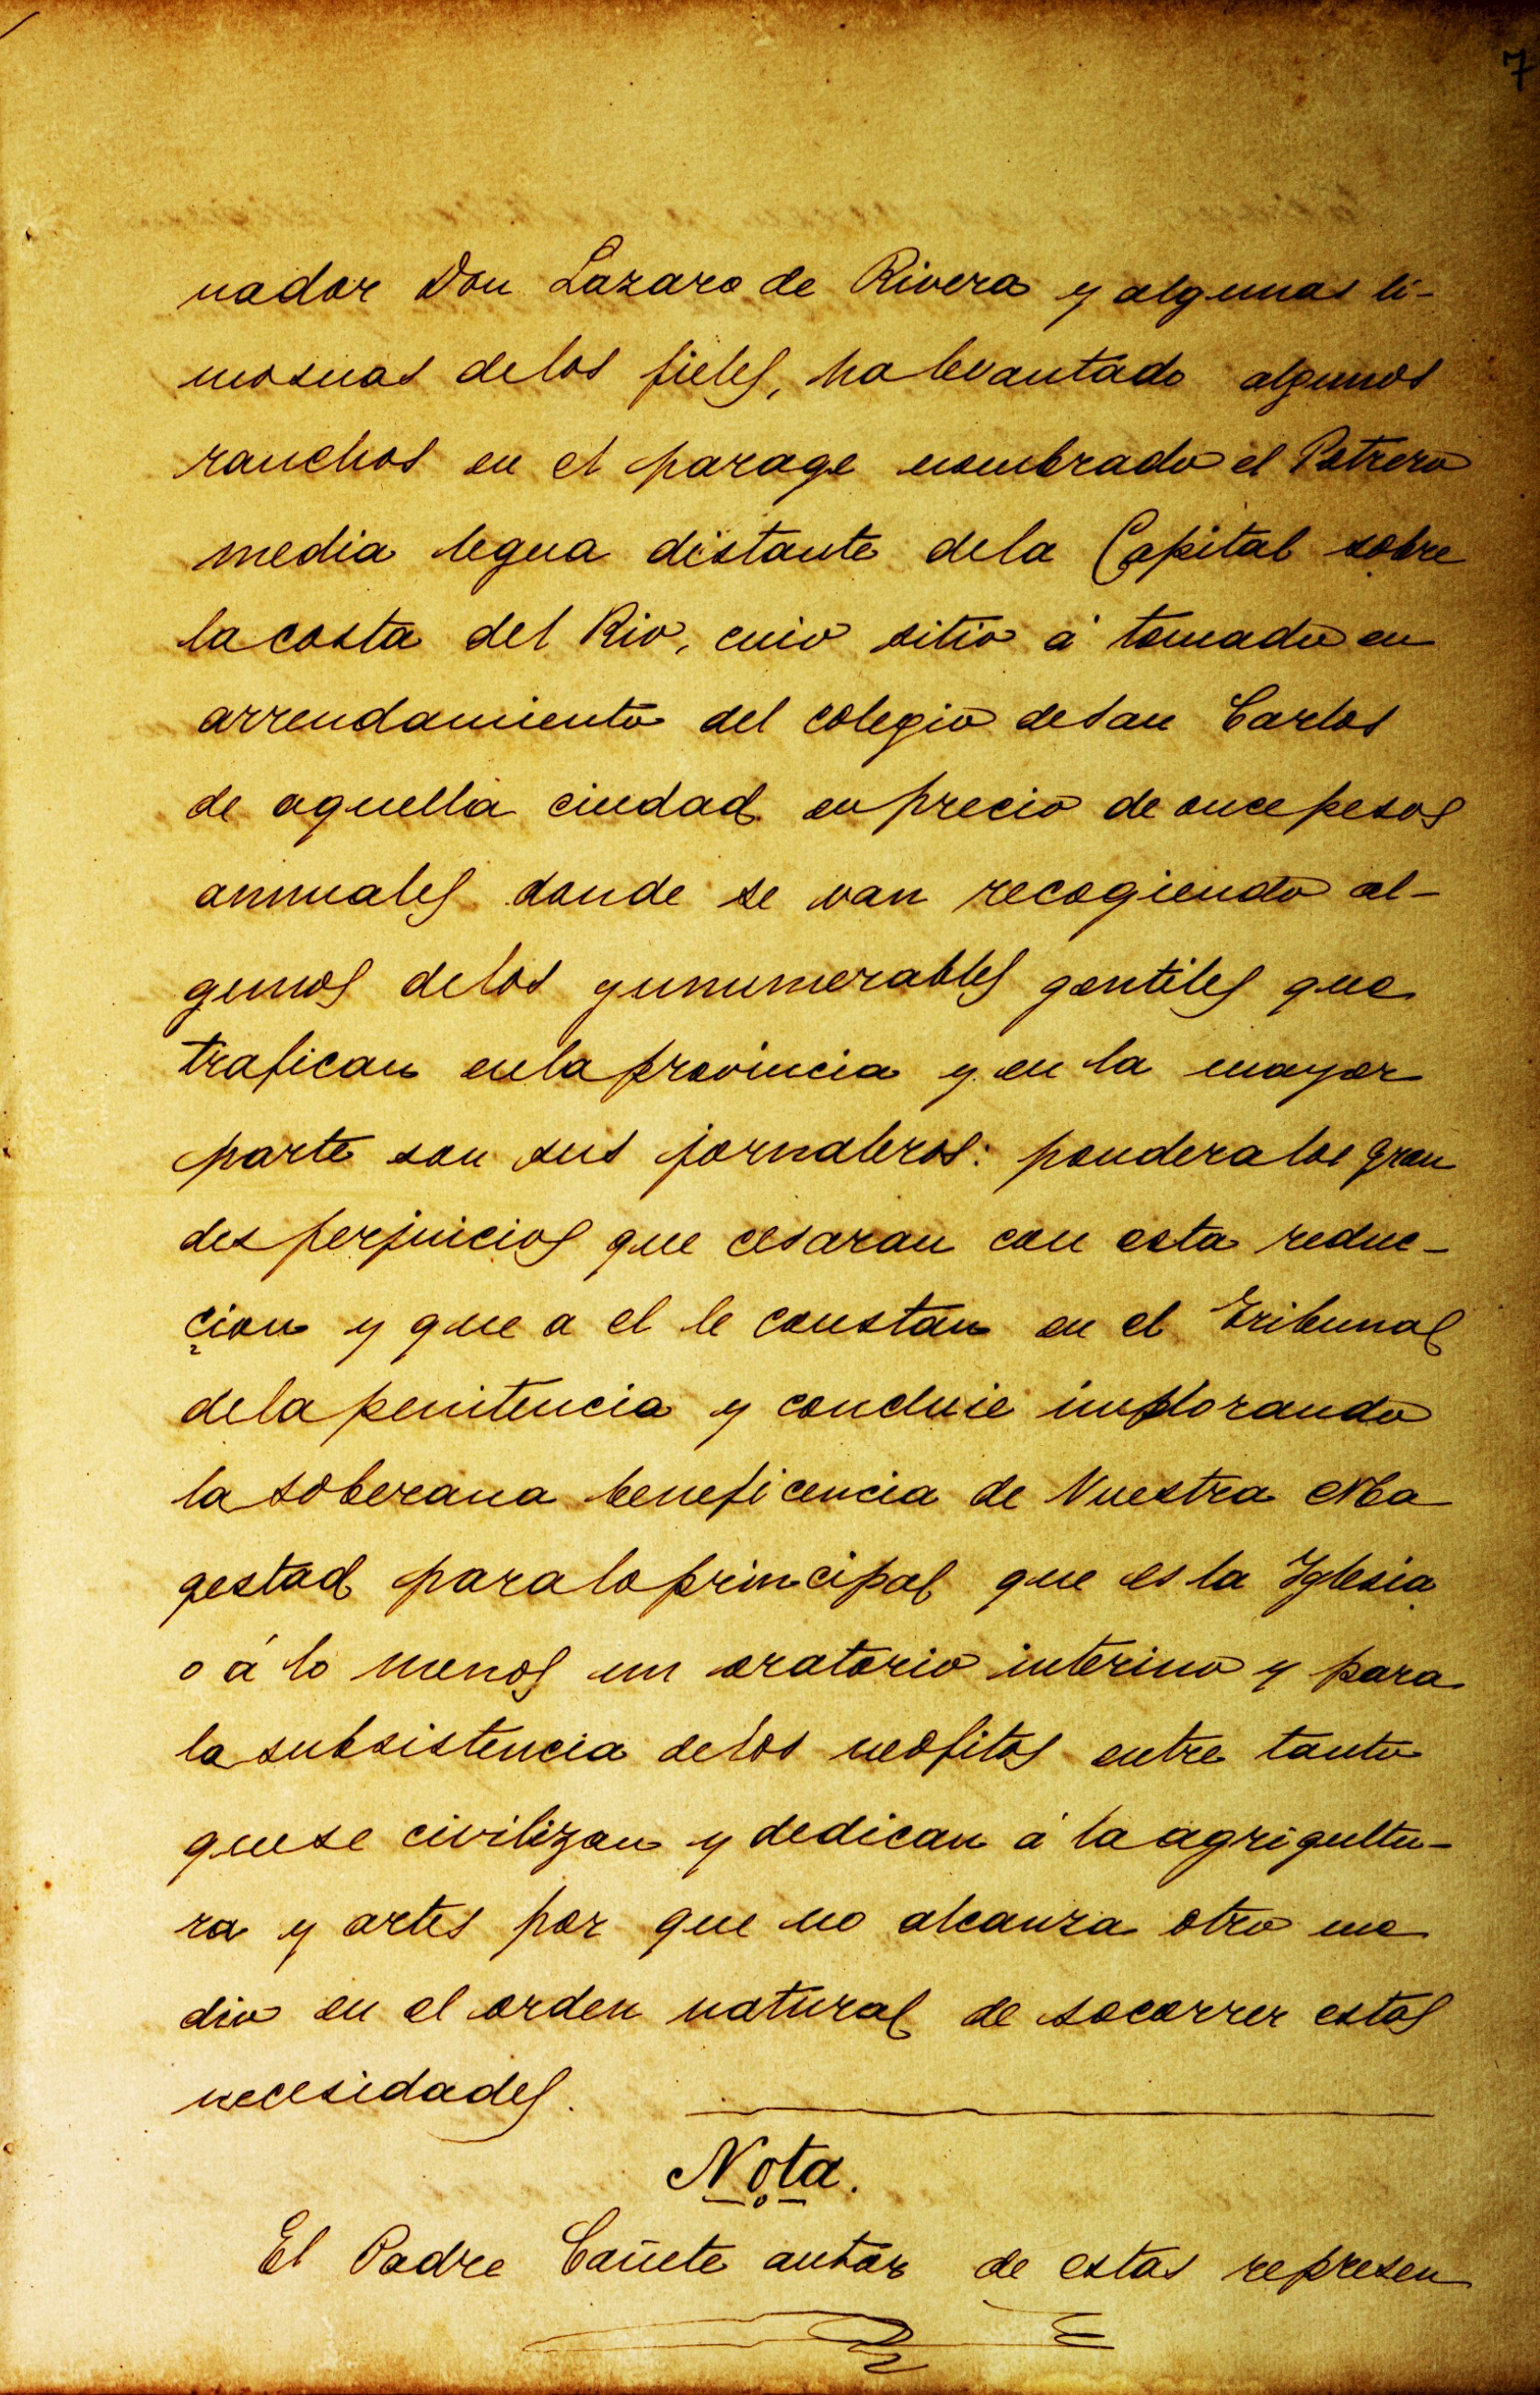 7
nador Don Lazaro de Rivera y algunas li-
mosnas delos fieles, ha levantado algunos
ranchos en el parage nombrado el Potrero
media legua distante dela Capital sobre
la costa del Rio, cuio sitio á tomado en
arrendamiento del colegio de san Carlos
de aquella ciudad en precio de once pesos
annuales donde se van recogiendo al-
gunos delos ynnumerables gentiles que
trafican enla provincia y en la mayor
parte son sus jornaleros: pondera los gran
des perjuicios que cesaran con esta reduc-
cion y que a el le constan en el Tribunal
dela penitencia y concluie implorando
la soberana beneficencia de Nuestra Ma
gestad para lo principal que es la Yglesia
o á lo menos un oratorio interino y para
la subsistencia delos neofitos entre tanto
quese civilizan y dedican á la agricultu-
ra y artes por que no alcanza otro me
dio en el orden natural de socorrer estas
necesidades.
Nota.
El Padre Cañete autor de estas represen